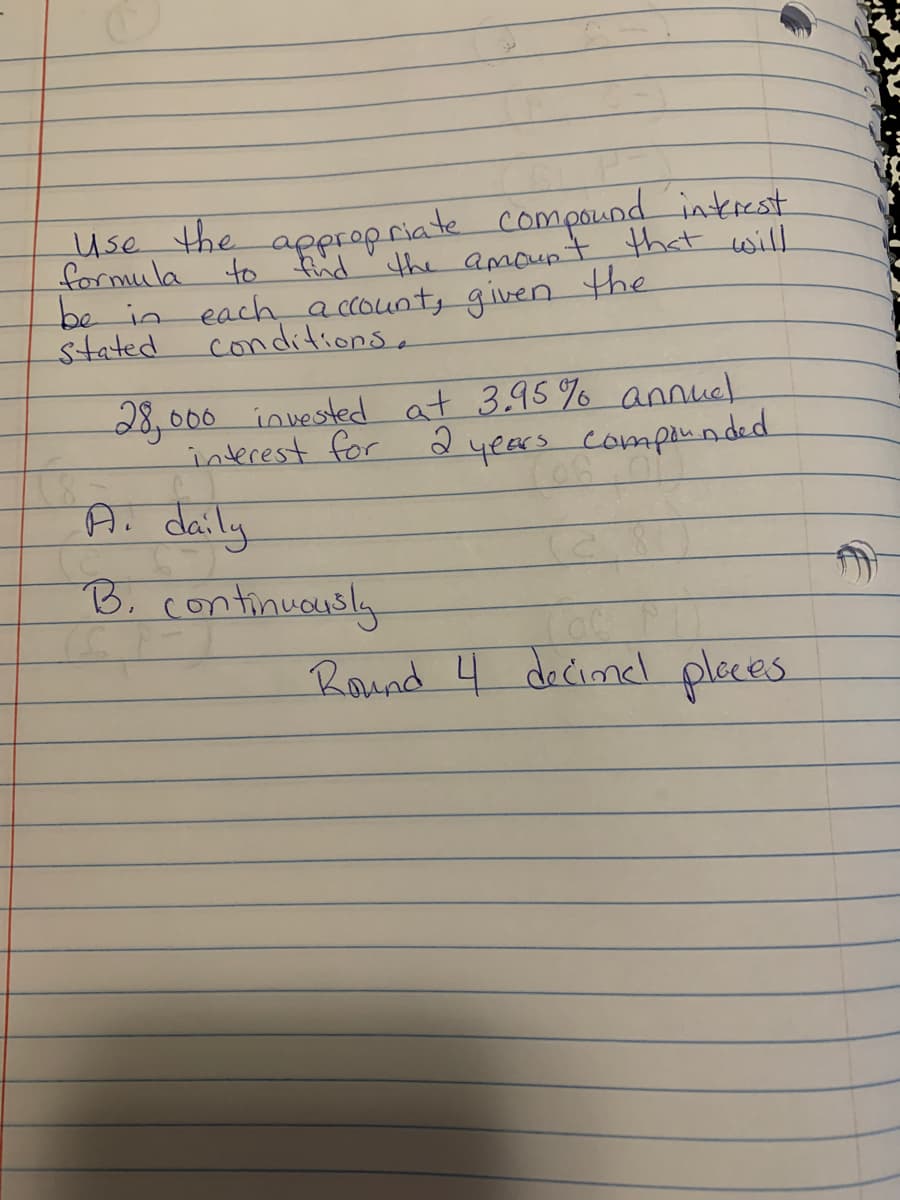 Use the appropriate compound intrest
formula to find the amount that will
be in each account, given the
stated conditions.
28,000 invested at 3.95% annual
interest for 2 years compounded
A. daily
B. continuously
Round 4 decimal places